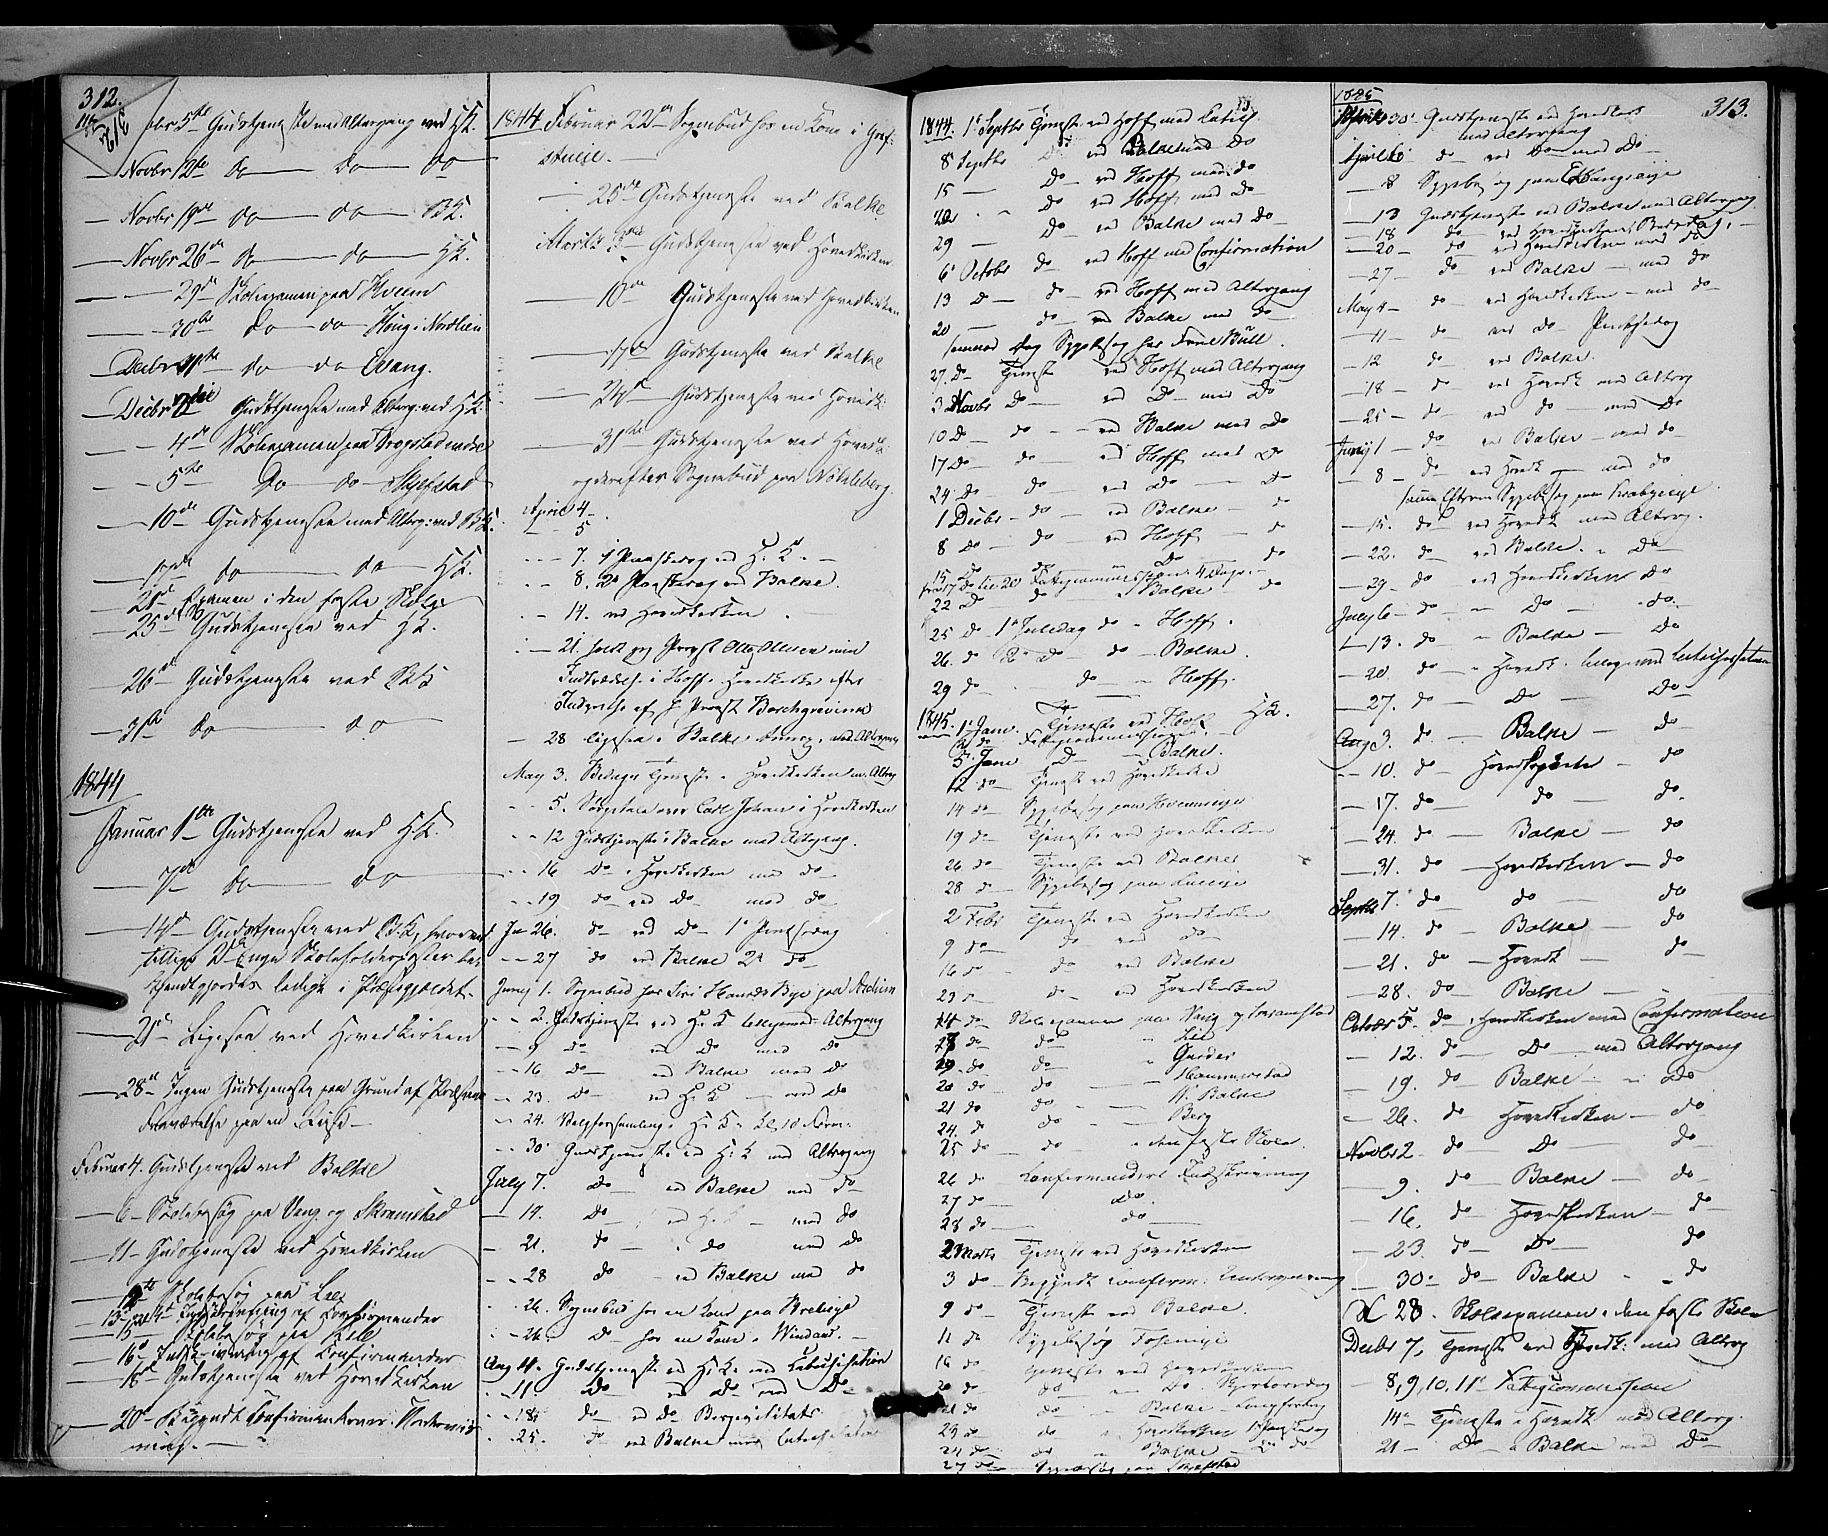 312.
Novbr 5te Gudstjeneste med Altergang ved HK.
— Novbr 12te do — do — do
— Novbr 19de do — do — BK.
— Novbr 26de do — do — HK.
— 29de Skolexamen paa Hveem
— 30te do do Houg i Nordlien
Decbr 1ste do — do Evang.
Decbr Gudstjeneste med Alterg: ved HK.
— 4de Skolexamen paa
— 5te do do Skjefstad
— 10de Gudstjeneste med Alterg: ved BK.
— 17de do — do — HK.
— 21de Examen i den faste Skole
— 25de Gudstjeneste ved HK.
— 26de Gudstjeneste ved BK
— 31te do — do
1844
Januar 1ste Gudstjeneste ved HK.
— 7de do — do
— 14de Gudstjeneste ved BK, hvorved
tillige Skoleholderposter be-
kjendtgjordes ledige i Præstegjældet.
— 21de Ligesaa ved Hovedkirken
— 28de Ingen Gudstjeneste paa Grund af Præstens
Fraværelse paa en Reise —
Februar 4. Gudstjeneste ved Balke
— 6 — Skolebesøg paa Vang og Skramstad
— 11 — Gudstjeneste ved Hovedkirken
Skolebesøg paa Lee
13de og 14de Indskrivning af Confirmander
— 15 Skolebesøg paa
— 16de Indskrivning af Confirmander
— 18de Gudstjeneste ved Hovedkirken
— 20de Begyndt Confirmanternes
1844 Februar 22de Sognebud hos en Kone i Graf-
stueie. —
— 25de Gudstjeneste ved Balke
Marts 3die Gudstjeneste ved Hovedkirken
— 10de Gudstjeneste ved Hovedkirken
— 17de Gudstjeneste ved Balke
— 24de Gudstjeneste ved Hovedk:
— 31te Gudstjeneste ved Hovedk
og derefter Sognebud paa Nøkleberg.
April 4 —
— 5
— 7. 1 Paaskedag ved H. K. —
— 8. 2den Paaskedag ved Balke.
— 14. ved Hovedkirken
— 21. holdt jeg Provst Otto Ottesen min
Indtrædelse i Hoffs Hovedkirke efter
Indsættelse af H. Provst Borchgrevink
— 28 ligesaa i Balke Annex, med Altergang
May 3. Bededags Tjeneste i Hovedkirken m. Alterg
— 5. Sørgetale over Carl Johan i Hovedkirken
— 12 Gudstjeneste i Balke med Altergang.
— 16 Do i Hovedkirken med do
— 19 do ved Do — med do
26. do ved Do — 1ste Pintsedag
— 27 do ved Balke 2den do
Juny 1. Sognebud hos Siri Hansd. Bye paa
— 2. Gudstjeneste ved H. K. Altergang
— 9 do — ved Do — med do
— 16 do — ved Balke med do
— 23. do — ved H. K — med do
— 24. Valgforsamling i H. K. Kl. 10 Form.
— 30. Gudstjeneste ved H. K med Altergang
July 7. do — ved Balke med do
— 14. Do — ved H. K — med do
— 21. do — i do med do
— 28 do — ved Balke med do
— 26. Sognebud hos en Kone paa
— 26. Do — hos en Kone i Windad. —
Aug 4. Gudstjeneste ved H. K. med Catechisation
— 11. Do — ved Do med Do
— 18. do — ved Do
— 25. do — ved Balke med
1844. 1ste Septbr Tjeneste ved Hoff med Catech
8 Septbr Do ved Balke med Do
15 — Do — ved Hoff med do
22 — Do ved Hoff med Do
29 — Do — ved Balke med Do
6 Octobr do — ved Hoff med Confirmation
13 do — do — ved Hoff med Altergang
20 — do — ved Balke med do —
samme Dag Sygebesøg hos Bull.
27. do Tjenest ved Hoff med Altergang
3 Novbr do — ved Do — med Do
10 Do — do — ved Balke med Do
17 Do — do — ved Hoff med Do
24 Do — do — ved Do — Do
1 Decbr — do — ved Balke — do
8 Do — do — ved Hoff — do
15 do do Do do
fra 17 Do til 20 Fattigcommissioner 4 Dage
22 do do Balke do
25 do 1ste Juledag do — Hoff.
26. do 2 do — do — Balke.
29 do — do — Hoff.
1845. 1ste Jan. Tjeneste ved HK.
2 do Fattigcommission
5. Jan Do — Balke.
12 do Tjenest ved Hovedkirke
14 do Sygebesøg paa
19 do Tjeneste ved Hovedkirken
26 do Tjeneste ved Balke
28 do Sygebesøg paa
2 Febr Tjenest ved Hovedkirken
9 do — do ved do
16 do do ved Balke
23 — do — ved Hovedkirken
14 do Skolexamen paa Vang og Skramstad
do — do Lie
19 do do Garder
20 do do Hammerstad
21 do do — N. Balke
24. do do — Berg
25 do — do — i den faste Skole
26 do Confirmanders Indskrivning
27 do do.
28 do — do —
2 Marts Tjeneste ved Hovedkirken
3 do Begyndt Confirm: Underviisning
9 do Tjenest ved Balke.
11 do Sygebesøg
16 do Tjeneste ved Hovedkirken
20 do do — Do. Skjærtorsdag
21 do do — Balke Langfredag
23 do do Hovedkirken
24 do do Balke
27 do Sygebesøg paa Skjefstad
313.
1845
30 Gudstjeneste ved Hovedkirk
med Altergang
April 6 do — ved Do med do —
— 8 Sygebesøg paa
— 13 Gudstjeneste ved Balke med Altergang.
— 18 do — ved Hovedkirken Bededag, —
— 20 — do ved Hovedkirken med do
— 27 — do ved Balke — med do
May 4 — do — ved Hovedkirken — med do —
— 11 — do ved Do — Pintsedag
— 12 do ved Balke.
— 18 — do — ved Hovedk med Alterg
— 25 — do — ved do — med Do
Juny 1 — do — ved Balke — med do —
— 8 — do — ved Hovedk — med do
samme Eftermd Sygebesøg paa
— 15. do ved Hovedk med Alterg.
— 22. do ved Balke. — Do
— 29. do ved Hovedkirken Do
July 6 — do — Do — do.
— 13. do — Balke — Do
— 20. do — Hovedk.
— 27. do — Do — Do —
Aug 3. do — Balke — do
— 10. do — Hovedkirke — do
— 17. do — do — do.
— 24. do — Balke — do
— 31. do — Hovedkirken — do
Septbr 7. do — do — do
— 14. do — Balke — do
— 21. do — Hovedk — do
— 28. do — Balke — —
October 5. do — Hovedkirken med Confirmation
— 12. do — Do — med Altergang
— 19. do — Balke — Do
— 26. do Hovedkirken — do
Novbr 2 — do — Do — do
— 9. do — Balke — do —
— 16. do — Hovedkirken — do
— 23. do — Do — do
— 30. do — Balke — do
28. Skolexamen i den faste Skole
Decbr 7, Tjeneste ved Hovedk: med Alterg
— 8, 9, 10, 11te Fattigcommission
14de Tjeneste i Hovedk med Alterg.
21 — Do — i Balke med Do —